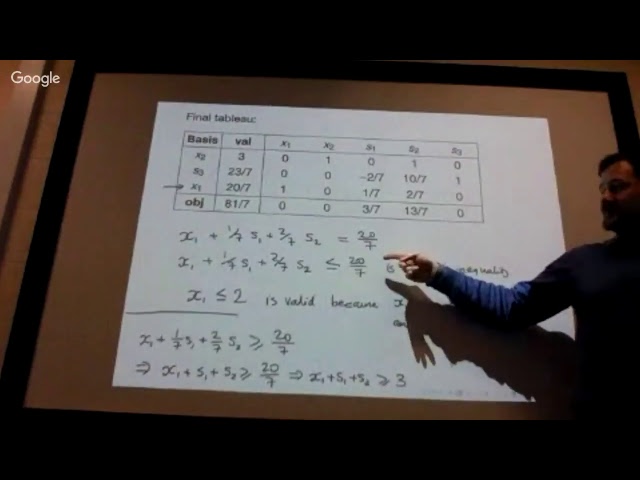 Google
Final tableau:
Basis val x₁ x₂ s₁ s₂ s₃
x₂ 3 0 1 0 1 0
s₃ 23/7 0 0 −2/7 10/7 1
→ x₁ 20/7 1 0 1/7 2/7 0
obj 81/7 0 0 3/7 13/7 0
x₁ + 1/7 s₁ + 2/7 s₂ = 20/7
x₁ + 1/7 s₁ + 2/7 s₂ ≤ 20/7 is inequality
x₁ ≤ 2 is valid because x
x₁ + 1/7 s₁ + 2/7 s₂ ≥ 20/7
⇒ x₁ + s₁ + s₂ ≥ 20/7 ⇒ x₁ + s₁ + s₂ ≥ 3